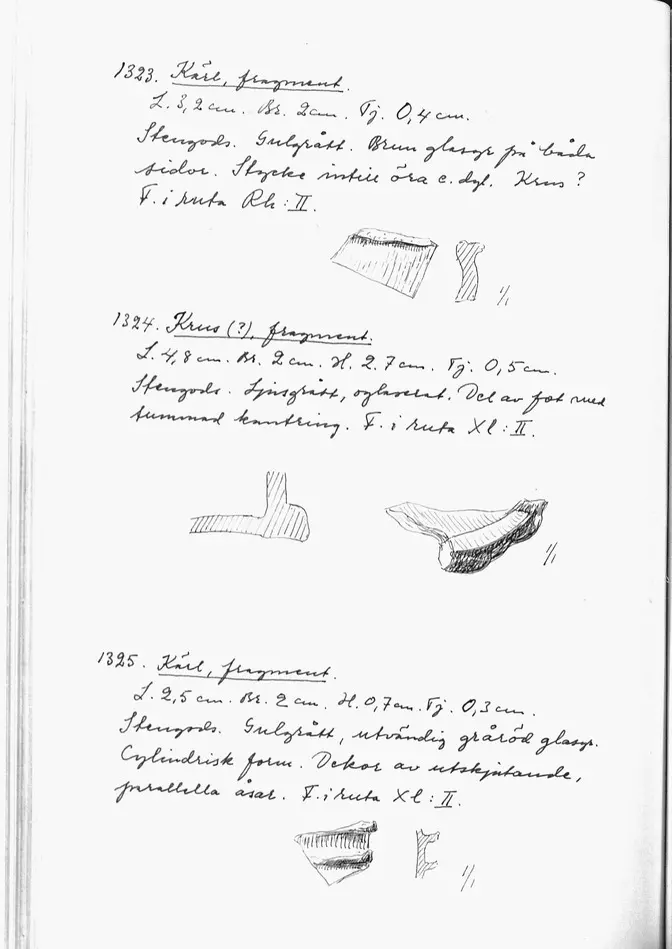 1323. Kärl, fragment.
L. 3,2 cm. Br. 2 cm. Tj. 0,4 cm.
Stengods. Gulgrått. Brun glasyr på båda
sidor. Stycke intill öra e. dyl. Krus?
F. i ruta Rh: II.
1/1
1324. Krus (?), fragment.
L. 4,8 cm. Br. 2 cm. H. 2.7 cm. Tj. 0,5 cm.
Stengods. Ljusgrått, oglaserat. Del av fot med
tummad kantring. F. i ruta Xl: II.
1/1
1325. Kärl, fragment.
L. 2,5 cm. Br. 2 cm. H. 0,7 cm. Tj. 0,3 cm.
Stengods. Gulgrått, utvändig gråröd glasyr.
Cylindrisk form. Dekor av utskjutande,
parallella åsar. F. i ruta Xl: II.
1/1